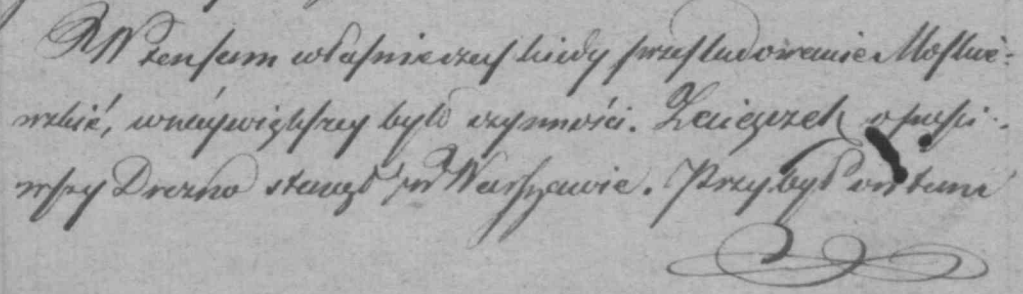 W tensam właśnie czas kiedy prześladowanie Moskwie-
wskié, w náywiększey było czynności. Zaiączek opuści-
wszy Drezno stanął w Warszawie. Przybył on tam